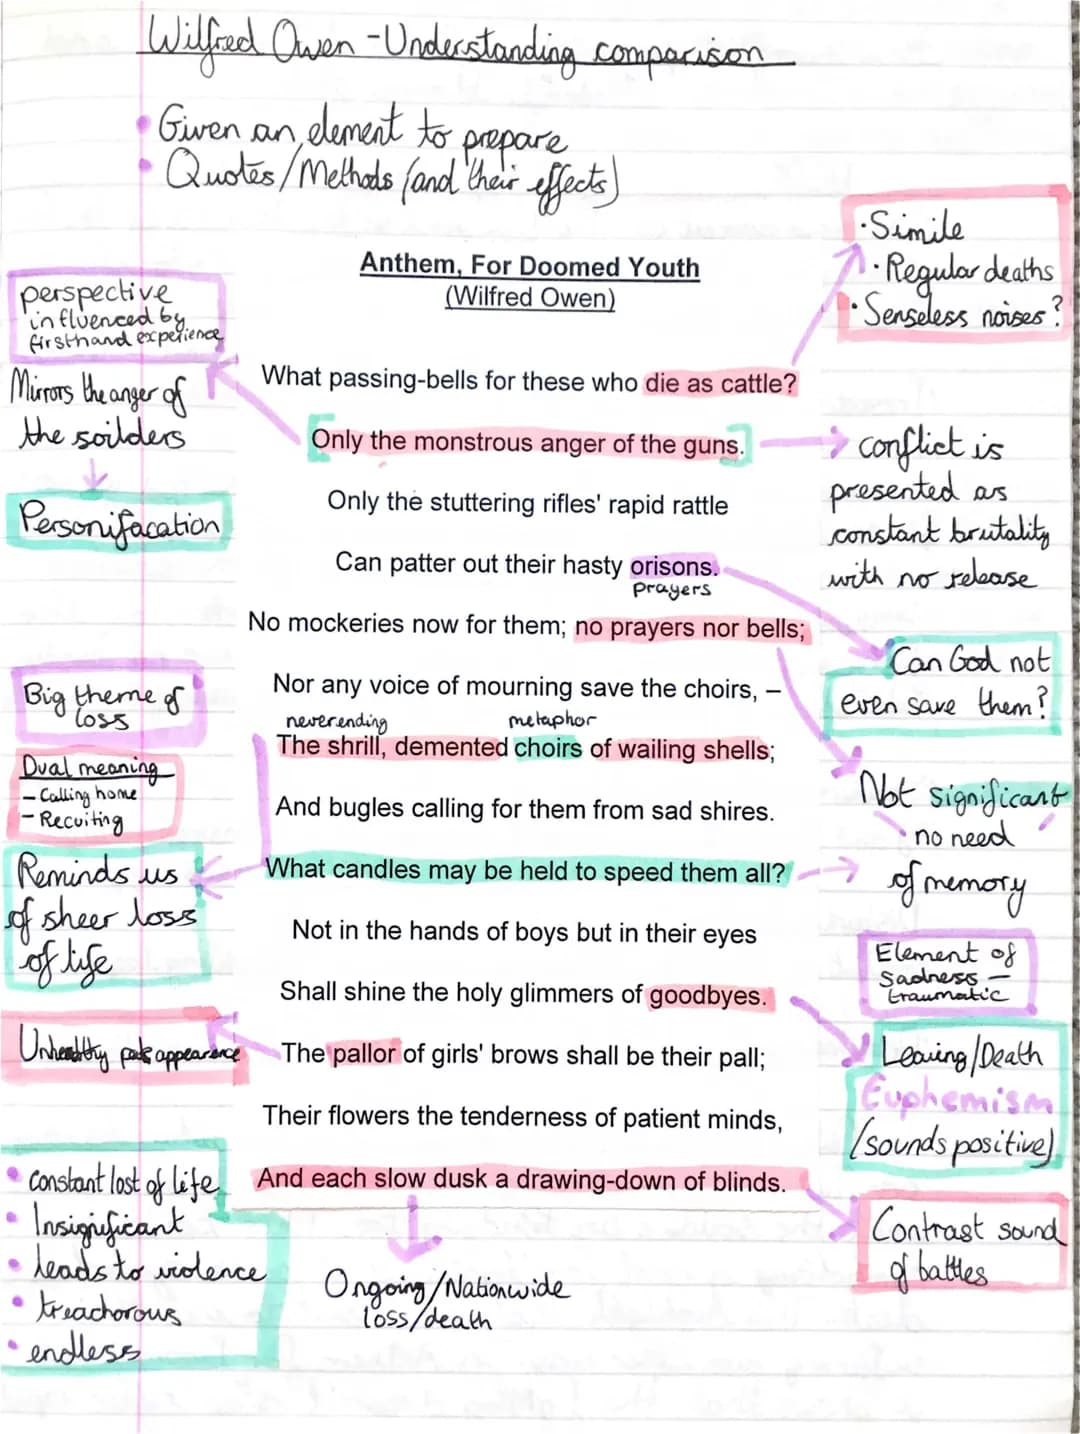 Wilfred Owen - Understanding comparison
• Given an element to prepare
• Quotes/Methods (and their effects)
Anthem, For Doomed Youth
(Wilfred Owen)
• Simile
• Regular deaths
• Senseless noises?
perspective
influenced by
firsthand experience
Mirrors the anger of
the soilders
Personifacation
What passing-bells for these who die as cattle?
Only the monstrous anger of the guns.
Only the stuttering rifles' rapid rattle
Can patter out their hasty orisons.
prayers
No mockeries now for them; no prayers nor bells;
Nor any voice of mourning save the choirs, –
neverending metaphor
The shrill, demented choirs of wailing shells;
And bugles calling for them from sad shires.
What candles may be held to speed them all?
Not in the hands of boys but in their eyes
Shall shine the holy glimmers of goodbyes.
The pallor of girls' brows shall be their pall;
Their flowers the tenderness of patient minds,
And each slow dusk a drawing-down of blinds.
conflict is
presented as
constant brutality
with no release
Can God not
even save them?
Big theme of
loss
Dual meaning
- Calling home
- Recuiting
Reminds us
of sheer loss
of life
Not significant
no need
of memory
Element of
Sadness –
traumatic
Unhealthy pale appearance
Leaving/Death
Euphemism
(sounds positive)
• constant lost of life
• Insignificant
• leads to violence
• treachorous
• endless
Ongoing/Nationwide
loss/death
Contrast sound
of battles